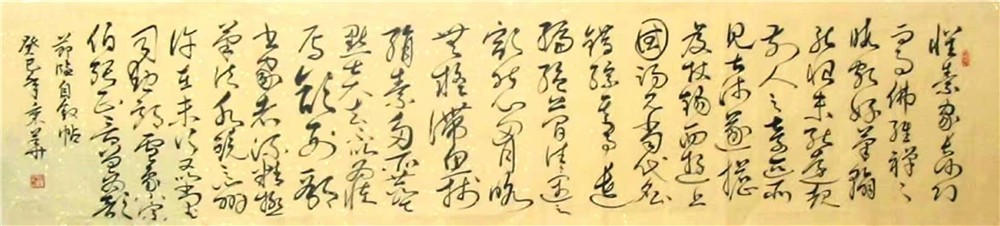 懷素家長沙幼
而事佛經禪之
暇頗好筆翰
然恨未能遠覩
前人之奇迹所
見甚淺遂擔
笈杖錫西遊上
國謁見當代名
公錯綜其事遺
編絕簡往往遇之
豁然心胸略
無疑滯魚牋
絹素多所塵
點士大夫不以為怪
焉顏刑部
書家者流精極
筆法水鏡之辨
許在末行又以尚書
司勳郎盧象小宗
伯張正言曾為歌
節臨自叙帖
癸巳年